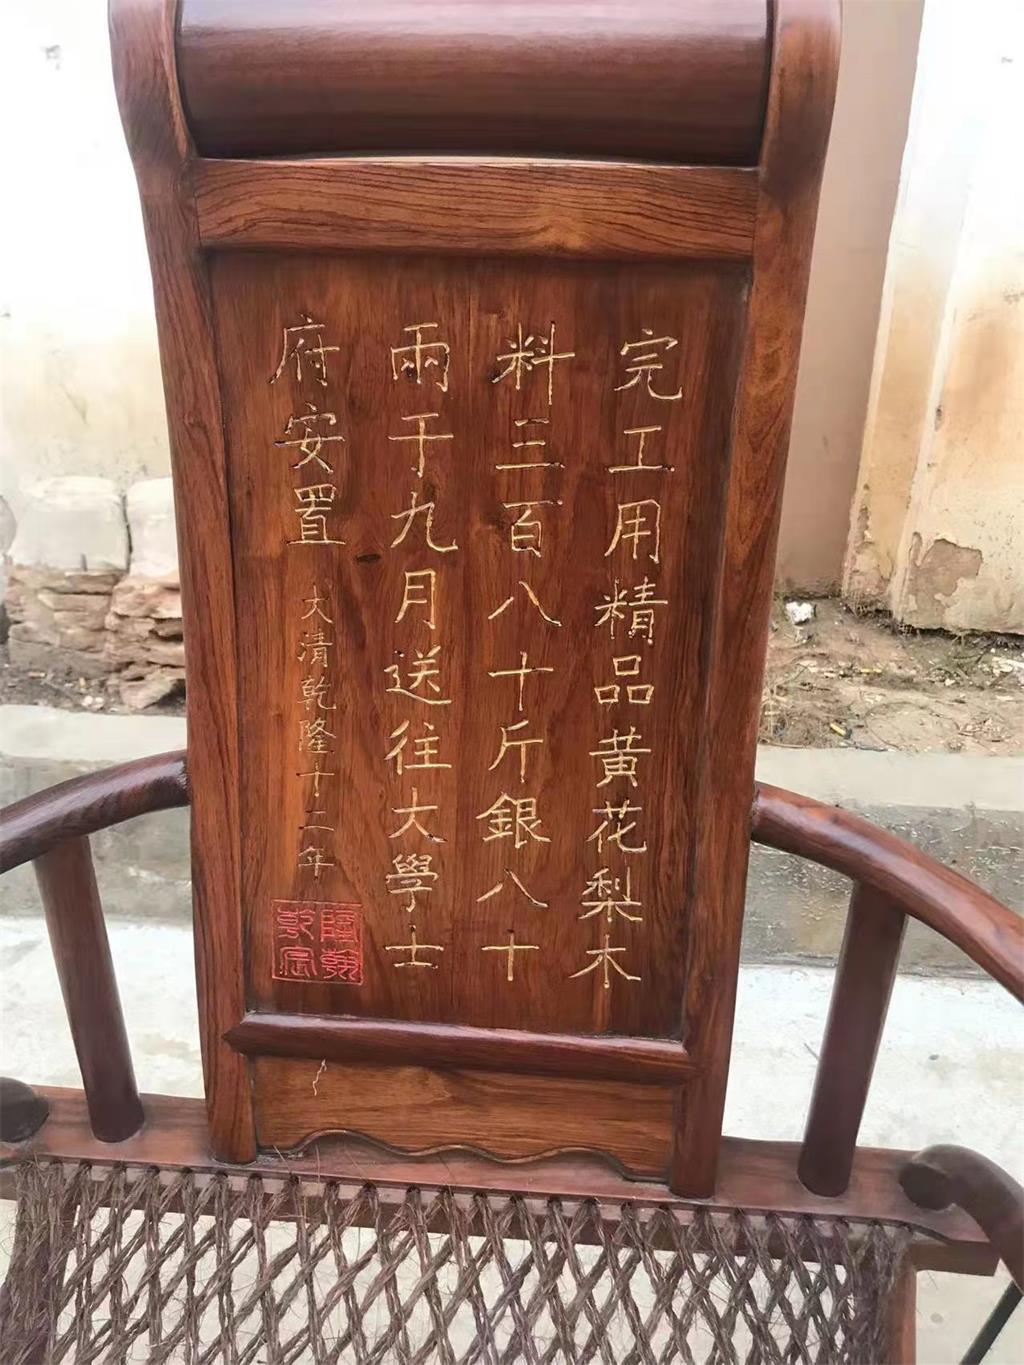 完工用精品黄花梨木
料三百八十斤銀八十
兩于九月送往大學士
府安置
大清乾隆十二年